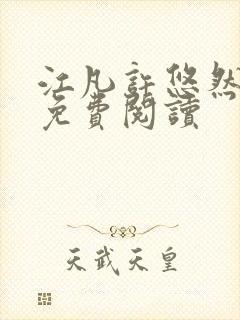 江凡許悠然
免費閱讀
天武天皇